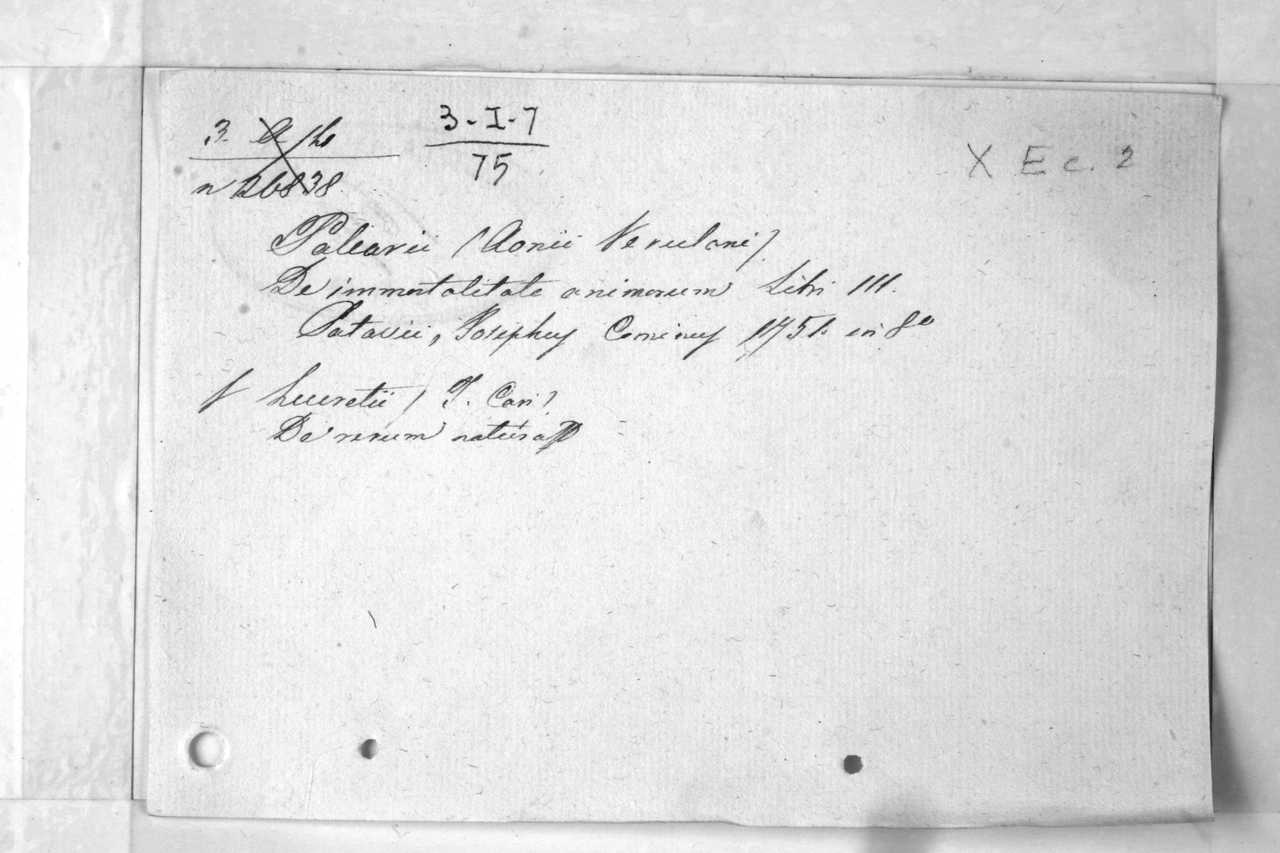 3-I-7
75
X E c. 2
n 26838
Palearii (Aonii Verulani)
De immortalitate animorum Libri III.
Patavii, Josephus Cominus 1751. en 8º
Lucretii (T. Cari)
De rerum natura